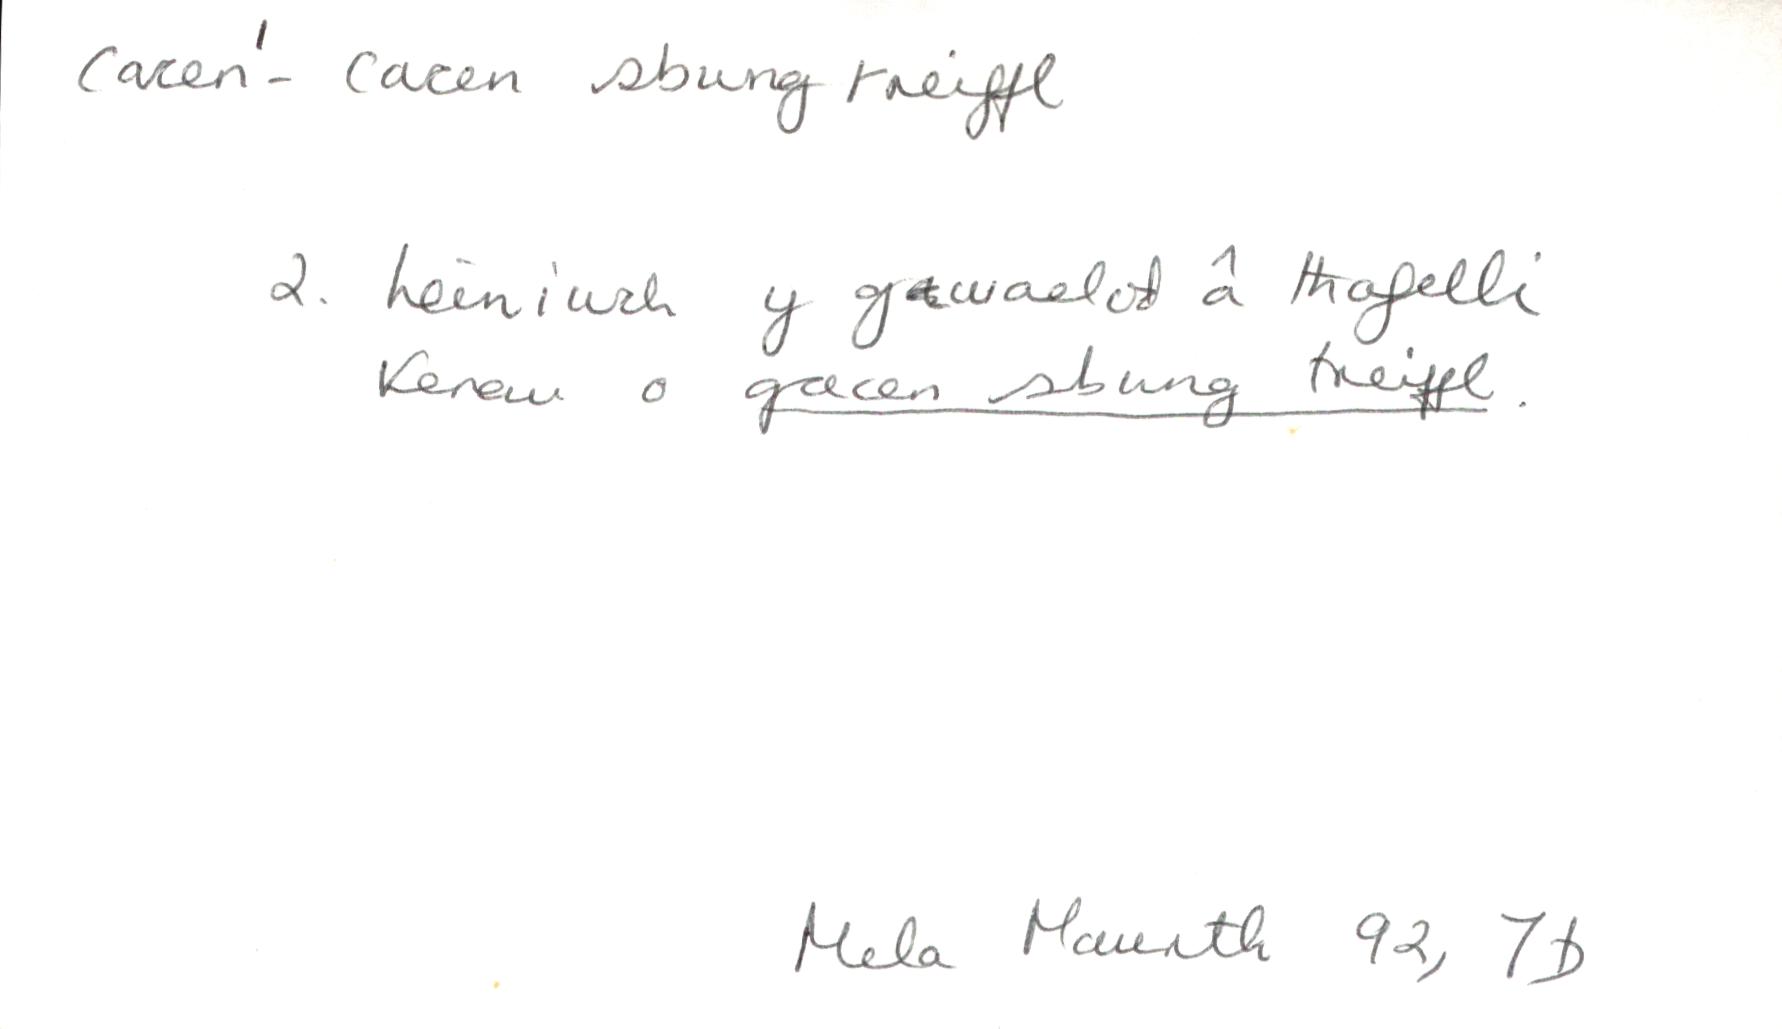 Cacen¹ - Cacen sbung treiffl
2. leiniwch y gwaelod â thafelli
tenew o gacen sbung treiffl.
Mela Mawrth 92, 7b